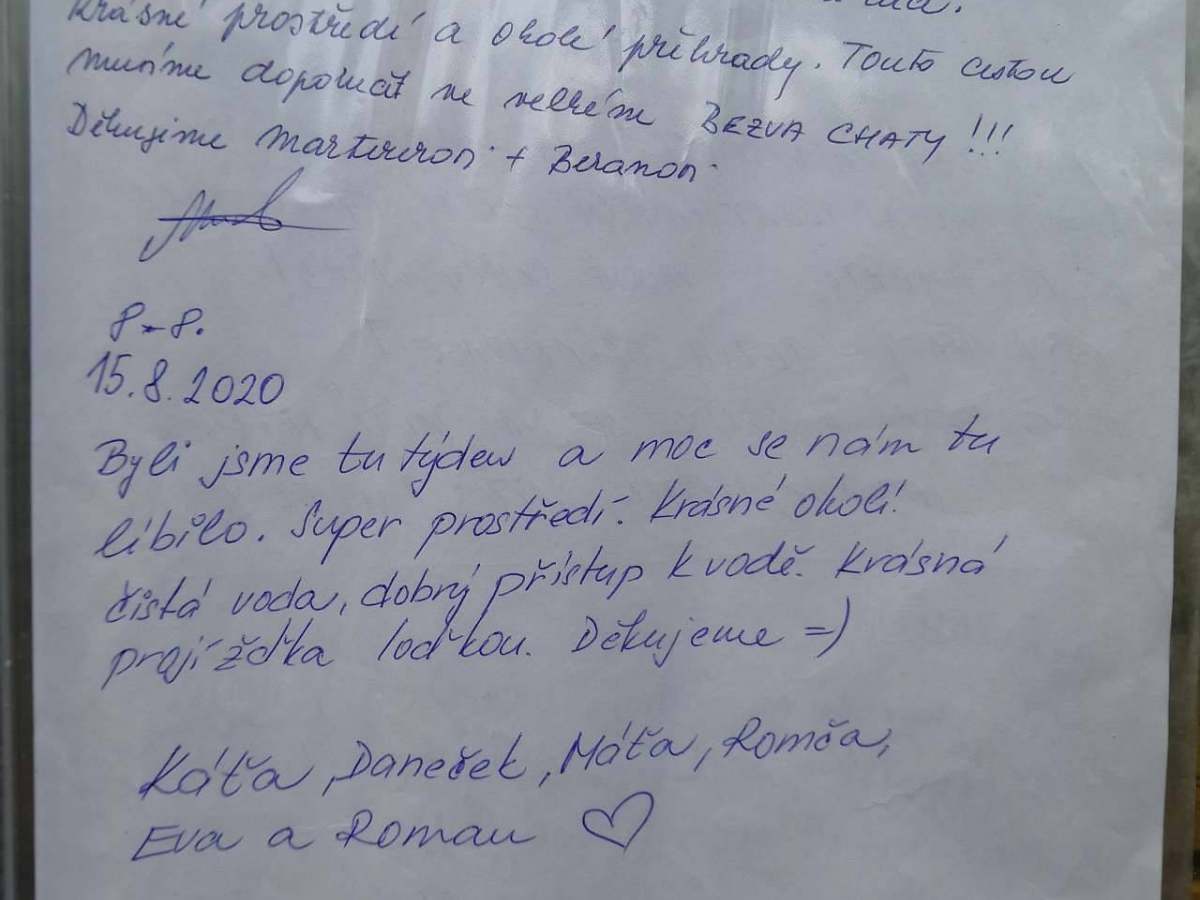 Krásné prostředí a okolí přehrady. Touto cestou
musíme doporučit ve velkém BEZVA CHATY !!!
Děkujeme + Beranovi
8.-8.
15.8.2020
Byli jsme tu týden a moc se nám tu
líbilo. Super prostředí. Krásné okolí!
čistá voda, dobrý přístup k vodě. Krásná
projížďka loďkou. Děkujeme =)
Káťa, Daneček, Máťa, Romča,
Eva a Roman ♡